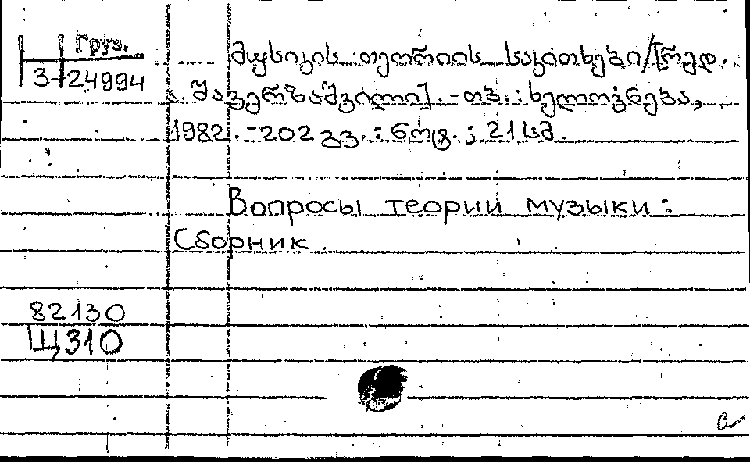 Груз.
3-24994
მუსიკის თეორიის საკითხები/[რედ.
შავერზაშვილი]. - თბ. : ხელოვნება,
1982. - 202 გვ. : ნოტ. ; 21 სმ.
Вопросы теории музыки :
Сборник.
82130
Щ310